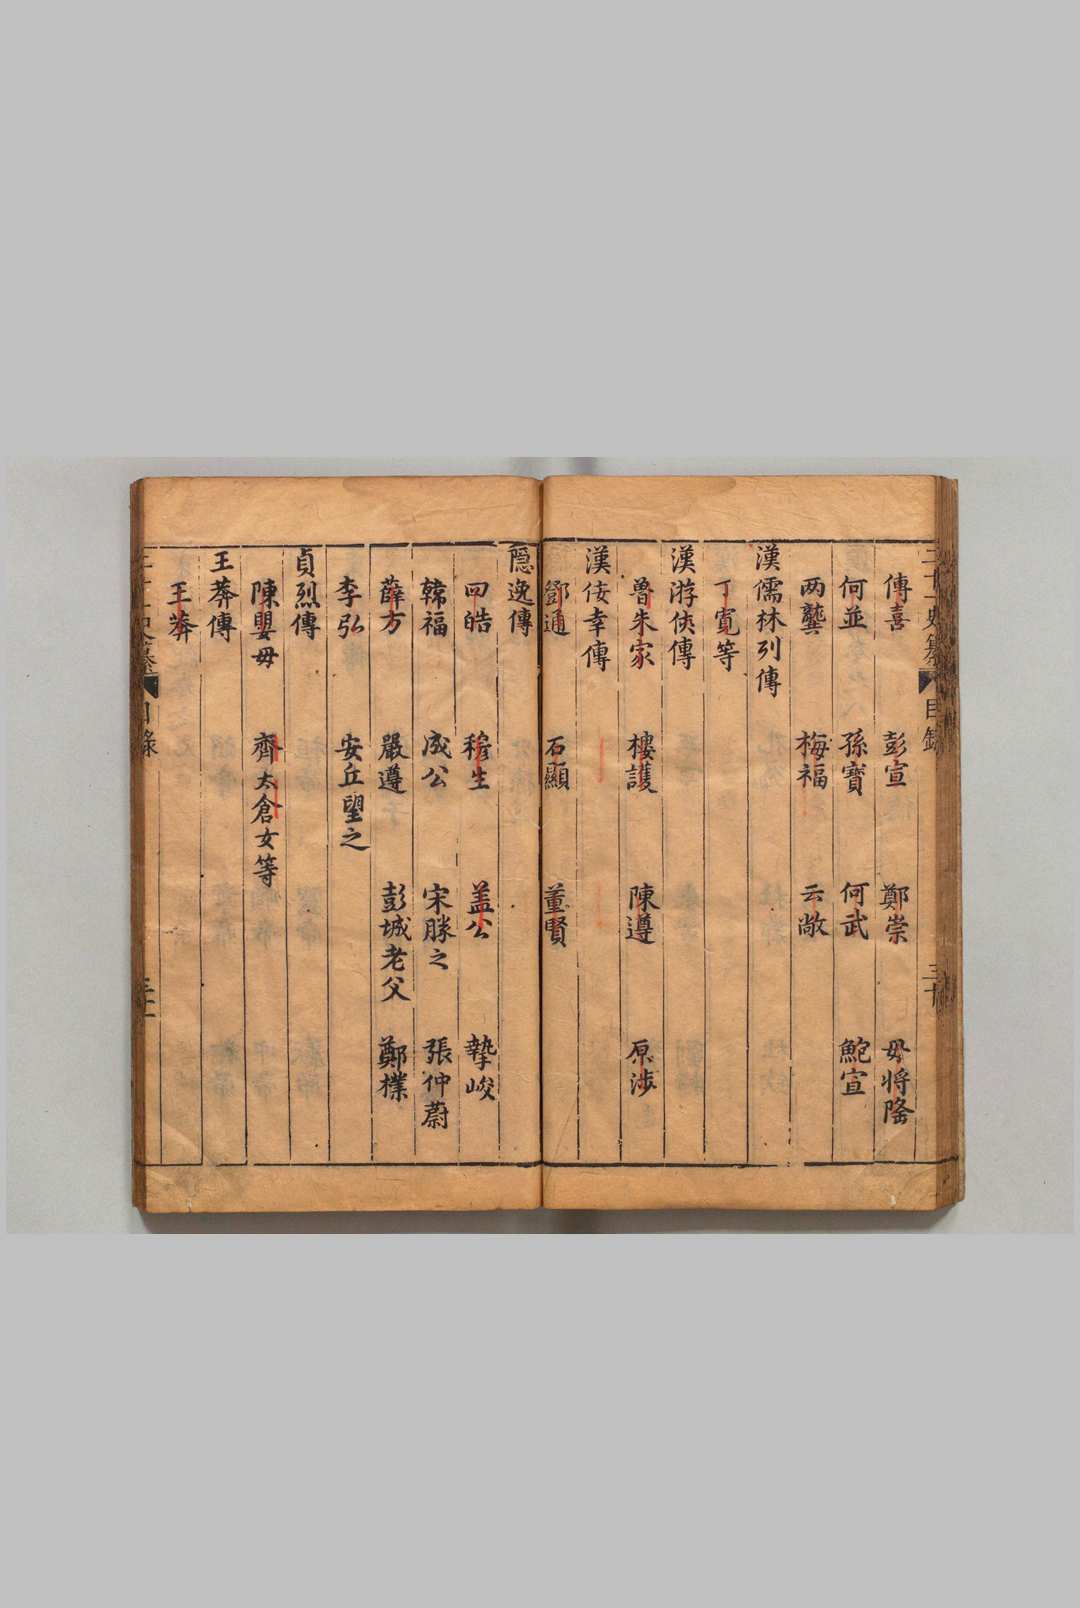 傅喜 彭宣 鄭崇 毋将隆
何並 孫寶 何武 鮑宣
两龔 梅福 云敞
漢儒林列傳
丁寬等
漢游俠傳
魯朱家 樓護 陳遵 原涉
漢佞幸傳
鄧通 石顯 董賢
隱逸傳
四皓 穆生 盖公 摯峻
韓福 成公 宋勝之 張仲蔚
薛方 嚴遵 彭城老父 鄭樸
李弘 安丘望之
貞烈傳
陳嬰母 齊太倉女等
王莽傳
王莽
目錄